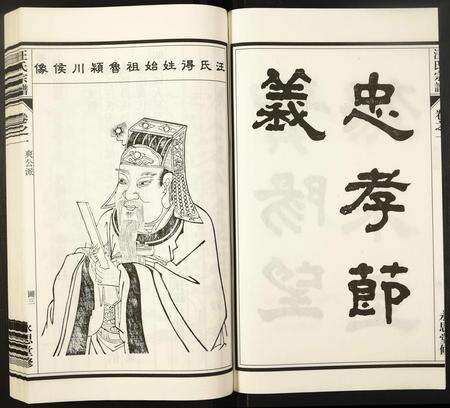 汪氏宗譜
卷之一
忠孝節
義
永思堂修
汪氏得姓始祖魯潁川侯像
汪氏宗譜
卷之一
爽公派
圖三
永思堂修